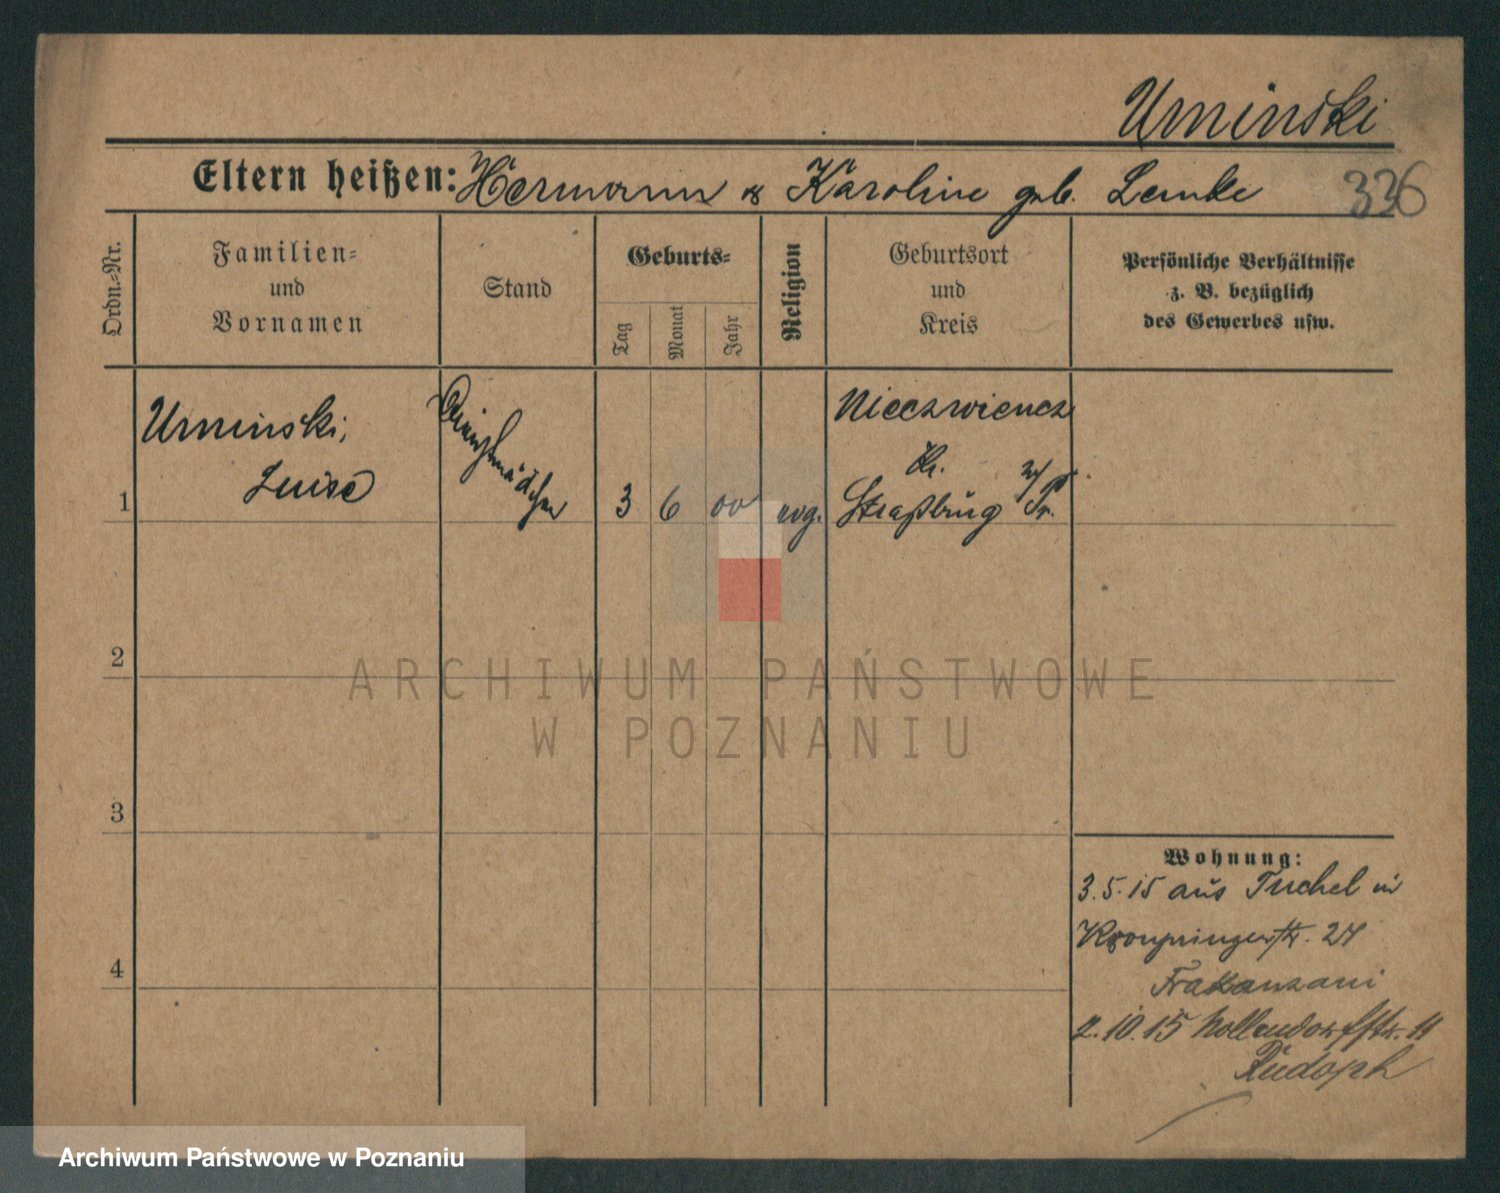 Uminski
Eltern heißen: Hermann & Karoline geb. Lemke
336
Ordn.=Nr.
Familien=
und
Vornamen
Stand
Geburts=
Tag
Monat
Jahr
Religion
Geburtsort
und
Kreis
Persönliche Verhältnisse
z. B. bezüglich
des Gewerbes usw.
1
Uminski,
Luise
Dienstmädchen
3 6 00 evg.
Nieczwiencz
Kr.
Straßburg W/Pr.
2
3
4
Wohnung:
3.5.15 aus Tuchel in
Kronprinzenstr. 24
2.10.15 Nollendorfstr. 11
Rudoph
ARCHIWUM PAŃSTWOWE
W POZNANIU
Archiwum Państwowe w Poznaniu